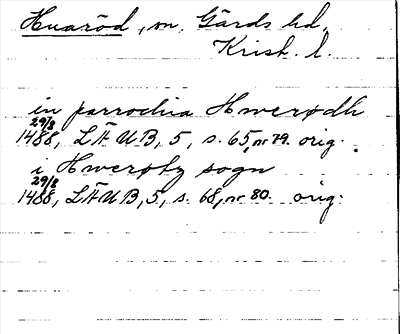 Huaröd, sn, Gärds hd,
Krist. l.
in parrochia Hwerødh
29/8
1488, LÄUB, 5, s. 65, nr 79. orig.
i Hwerøtz sogn
29/8
1488, LÄUB, 5, s. 68, nr 80. orig.